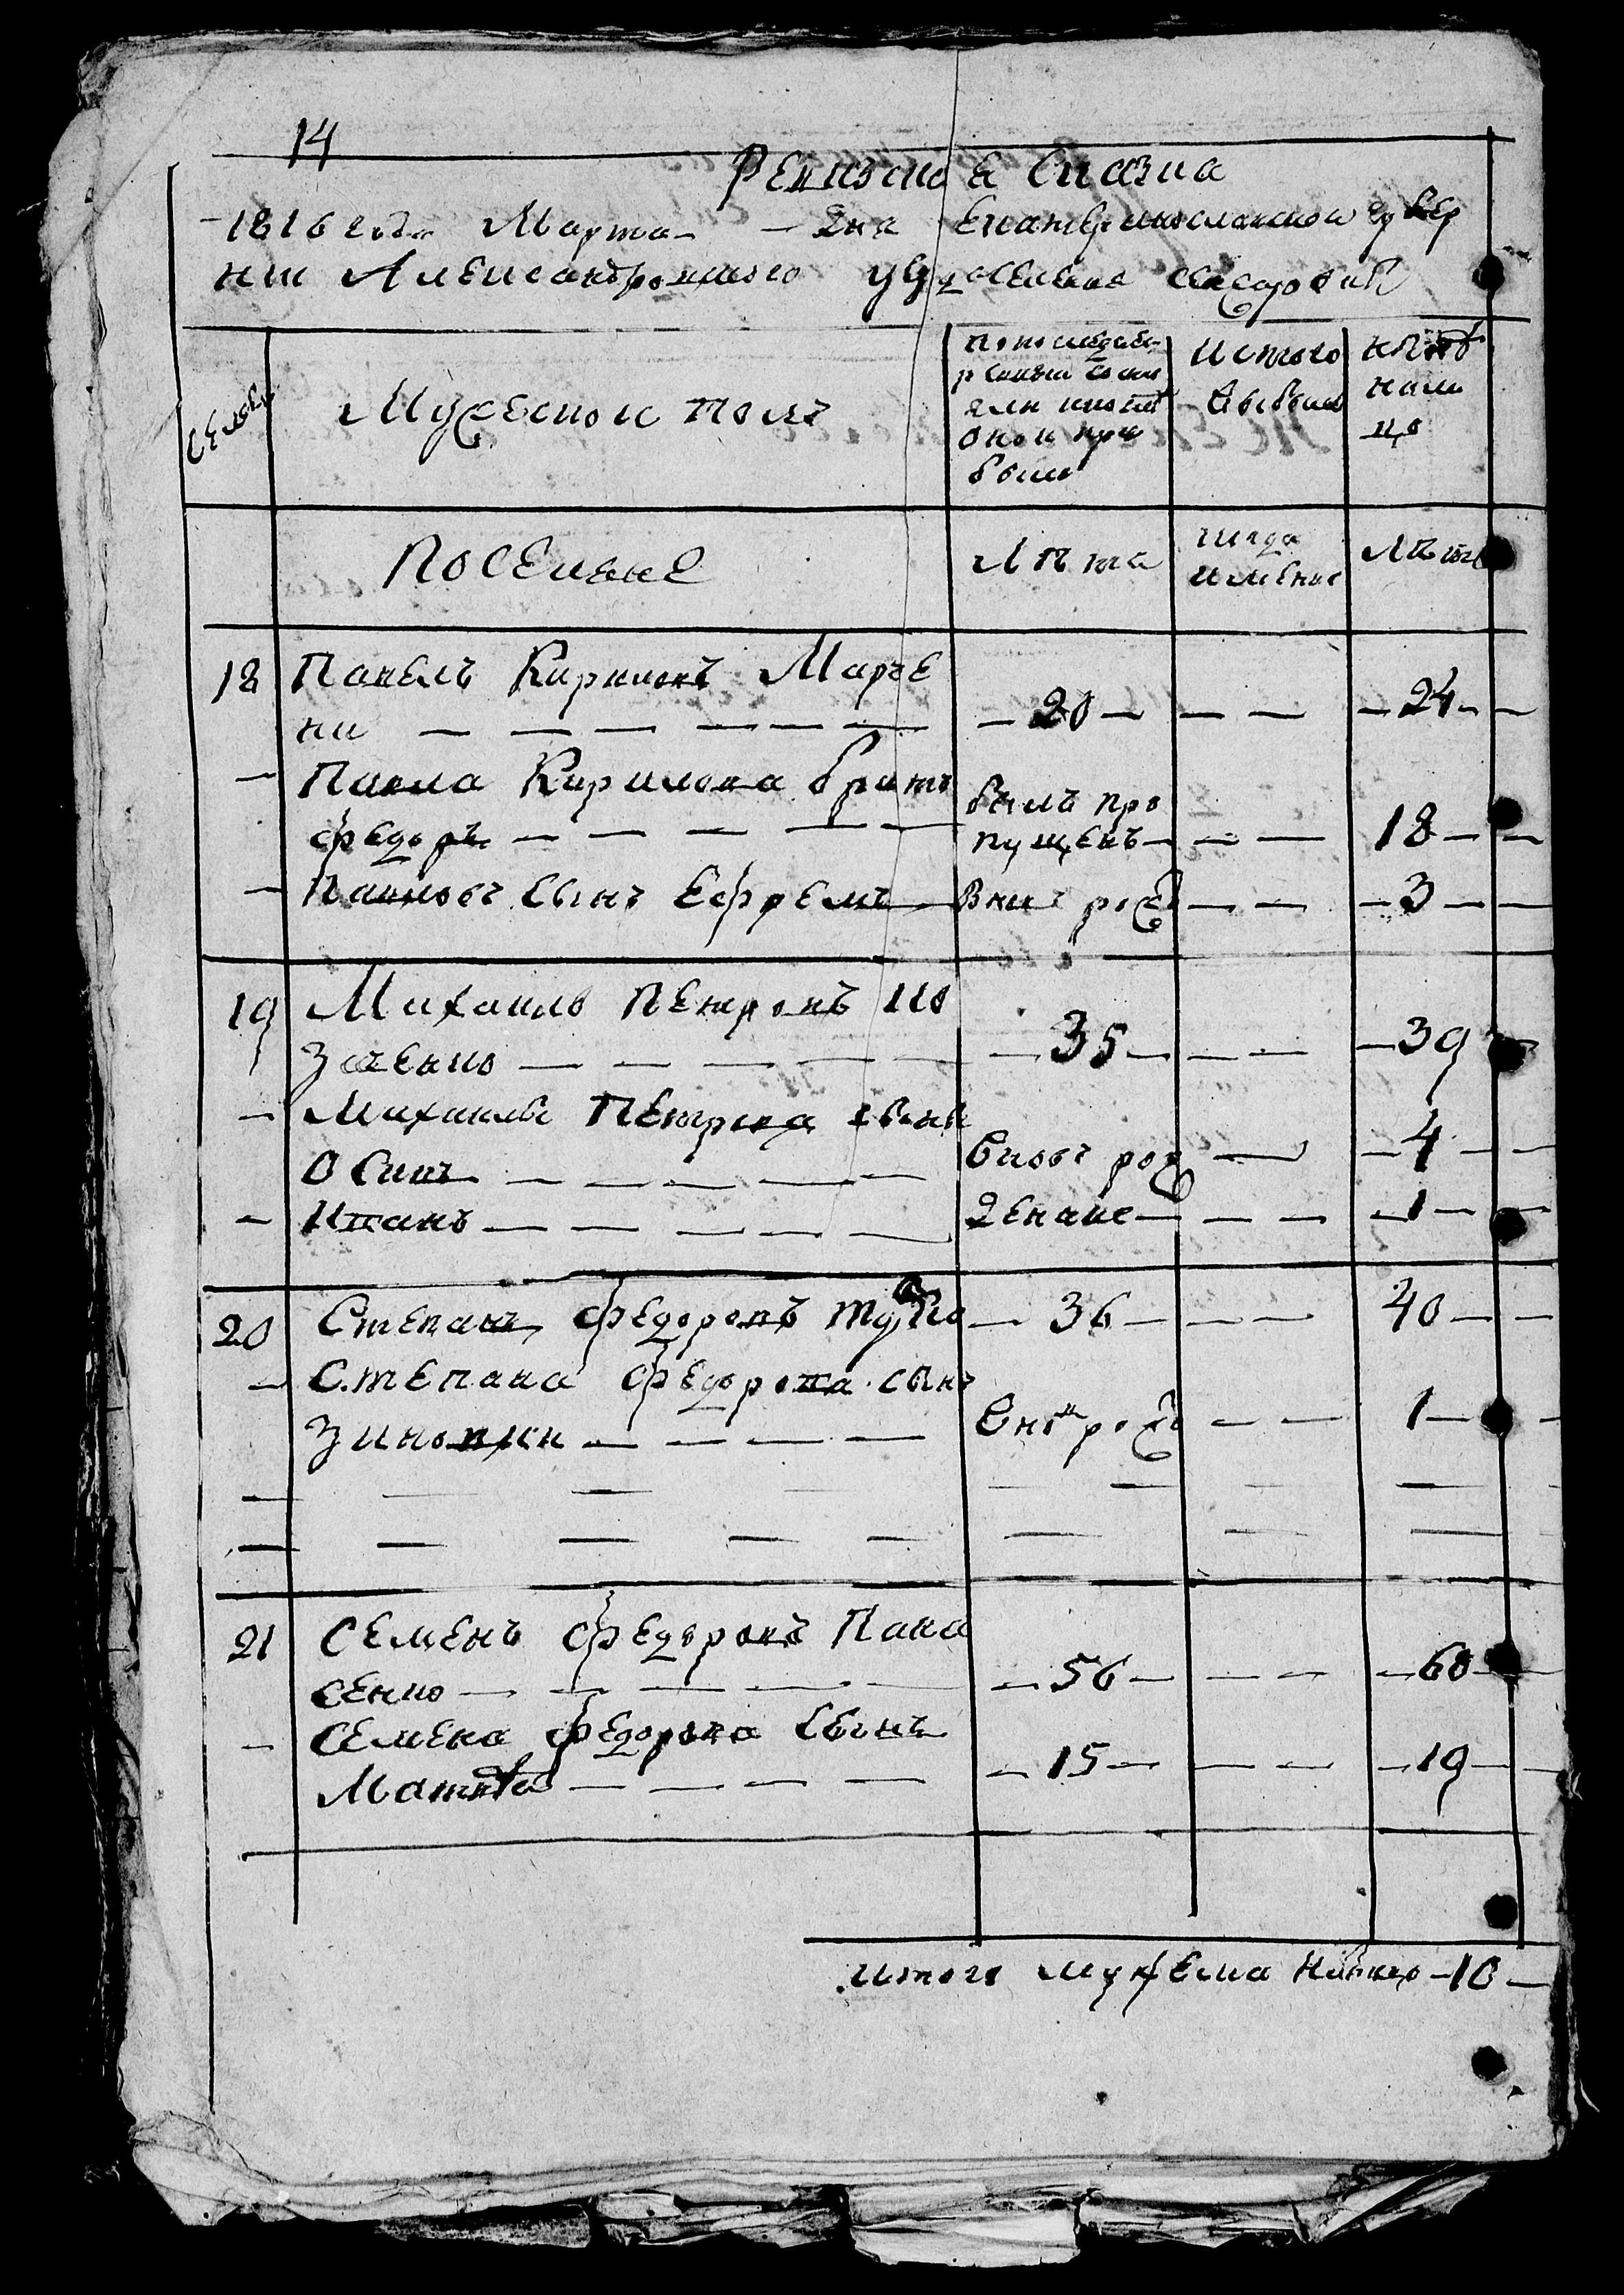 14
Ревизская Сказка
1816 года Марта — дня Екатеринославской губер
нии Александровского уезда селения
Семьи
Мужеской полъ
По последней
ревизии состо
яло и после
оной при
было
Ис того
выбыло
Ныне
на ли
цо
Поселяне
Лѣта
когда
имянно
Лѣта
18 Павелъ Кириловъ Марче
нко — 20 — — — — 24 —
— Павла Кирилова братъ
федоръ — былъ про
пущенъ — — — 18 —
— Павловъ Сынъ Ефремъ — Внов рож — — — 3 —
19 Михаило Петровъ Ко
заченко — 35 — — — — 39
— Михаила Петрова сыны
Осипъ — Вновь рож — — 4 —
— Иванъ — денные — — — 1 —
20 Степанъ федоровъ — 36 — — — 40 —
— Степана федорова сынъ
Зиновии — Внов рожъ — — 1 —
21 Семенъ федоровъ Пана
сенко — 56 — — — — 60 —
— Семена федорова Сынъ
Матвѣй — 15 — — — — 19 —
итого мужеска налицо — 10 —